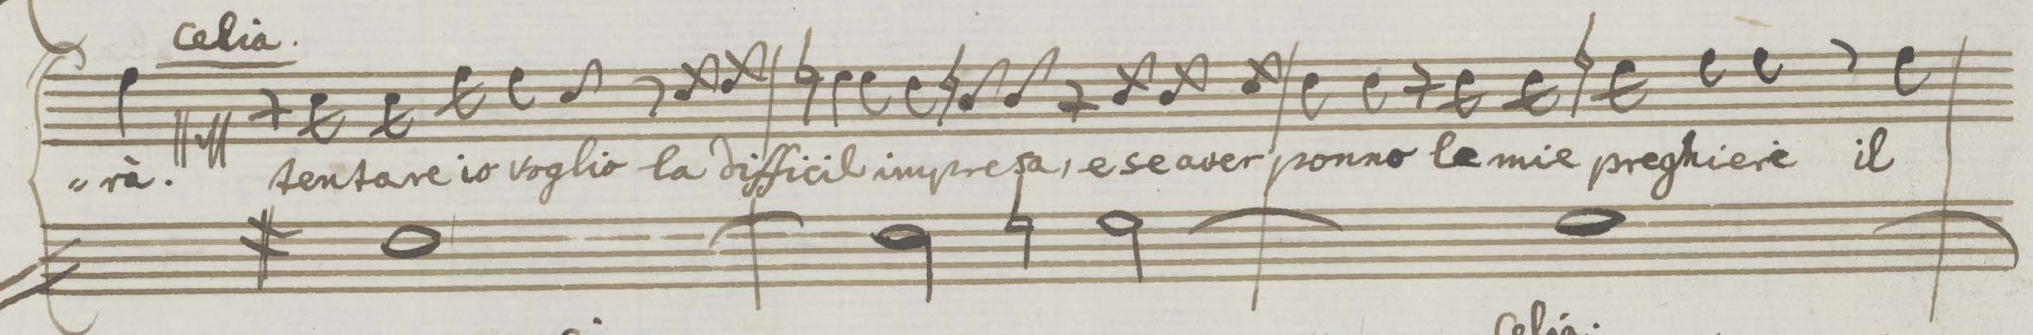 celia.
„rà. tentare io voglio la difficil impresa, e se aver ponno le mie preghiere il
celia.